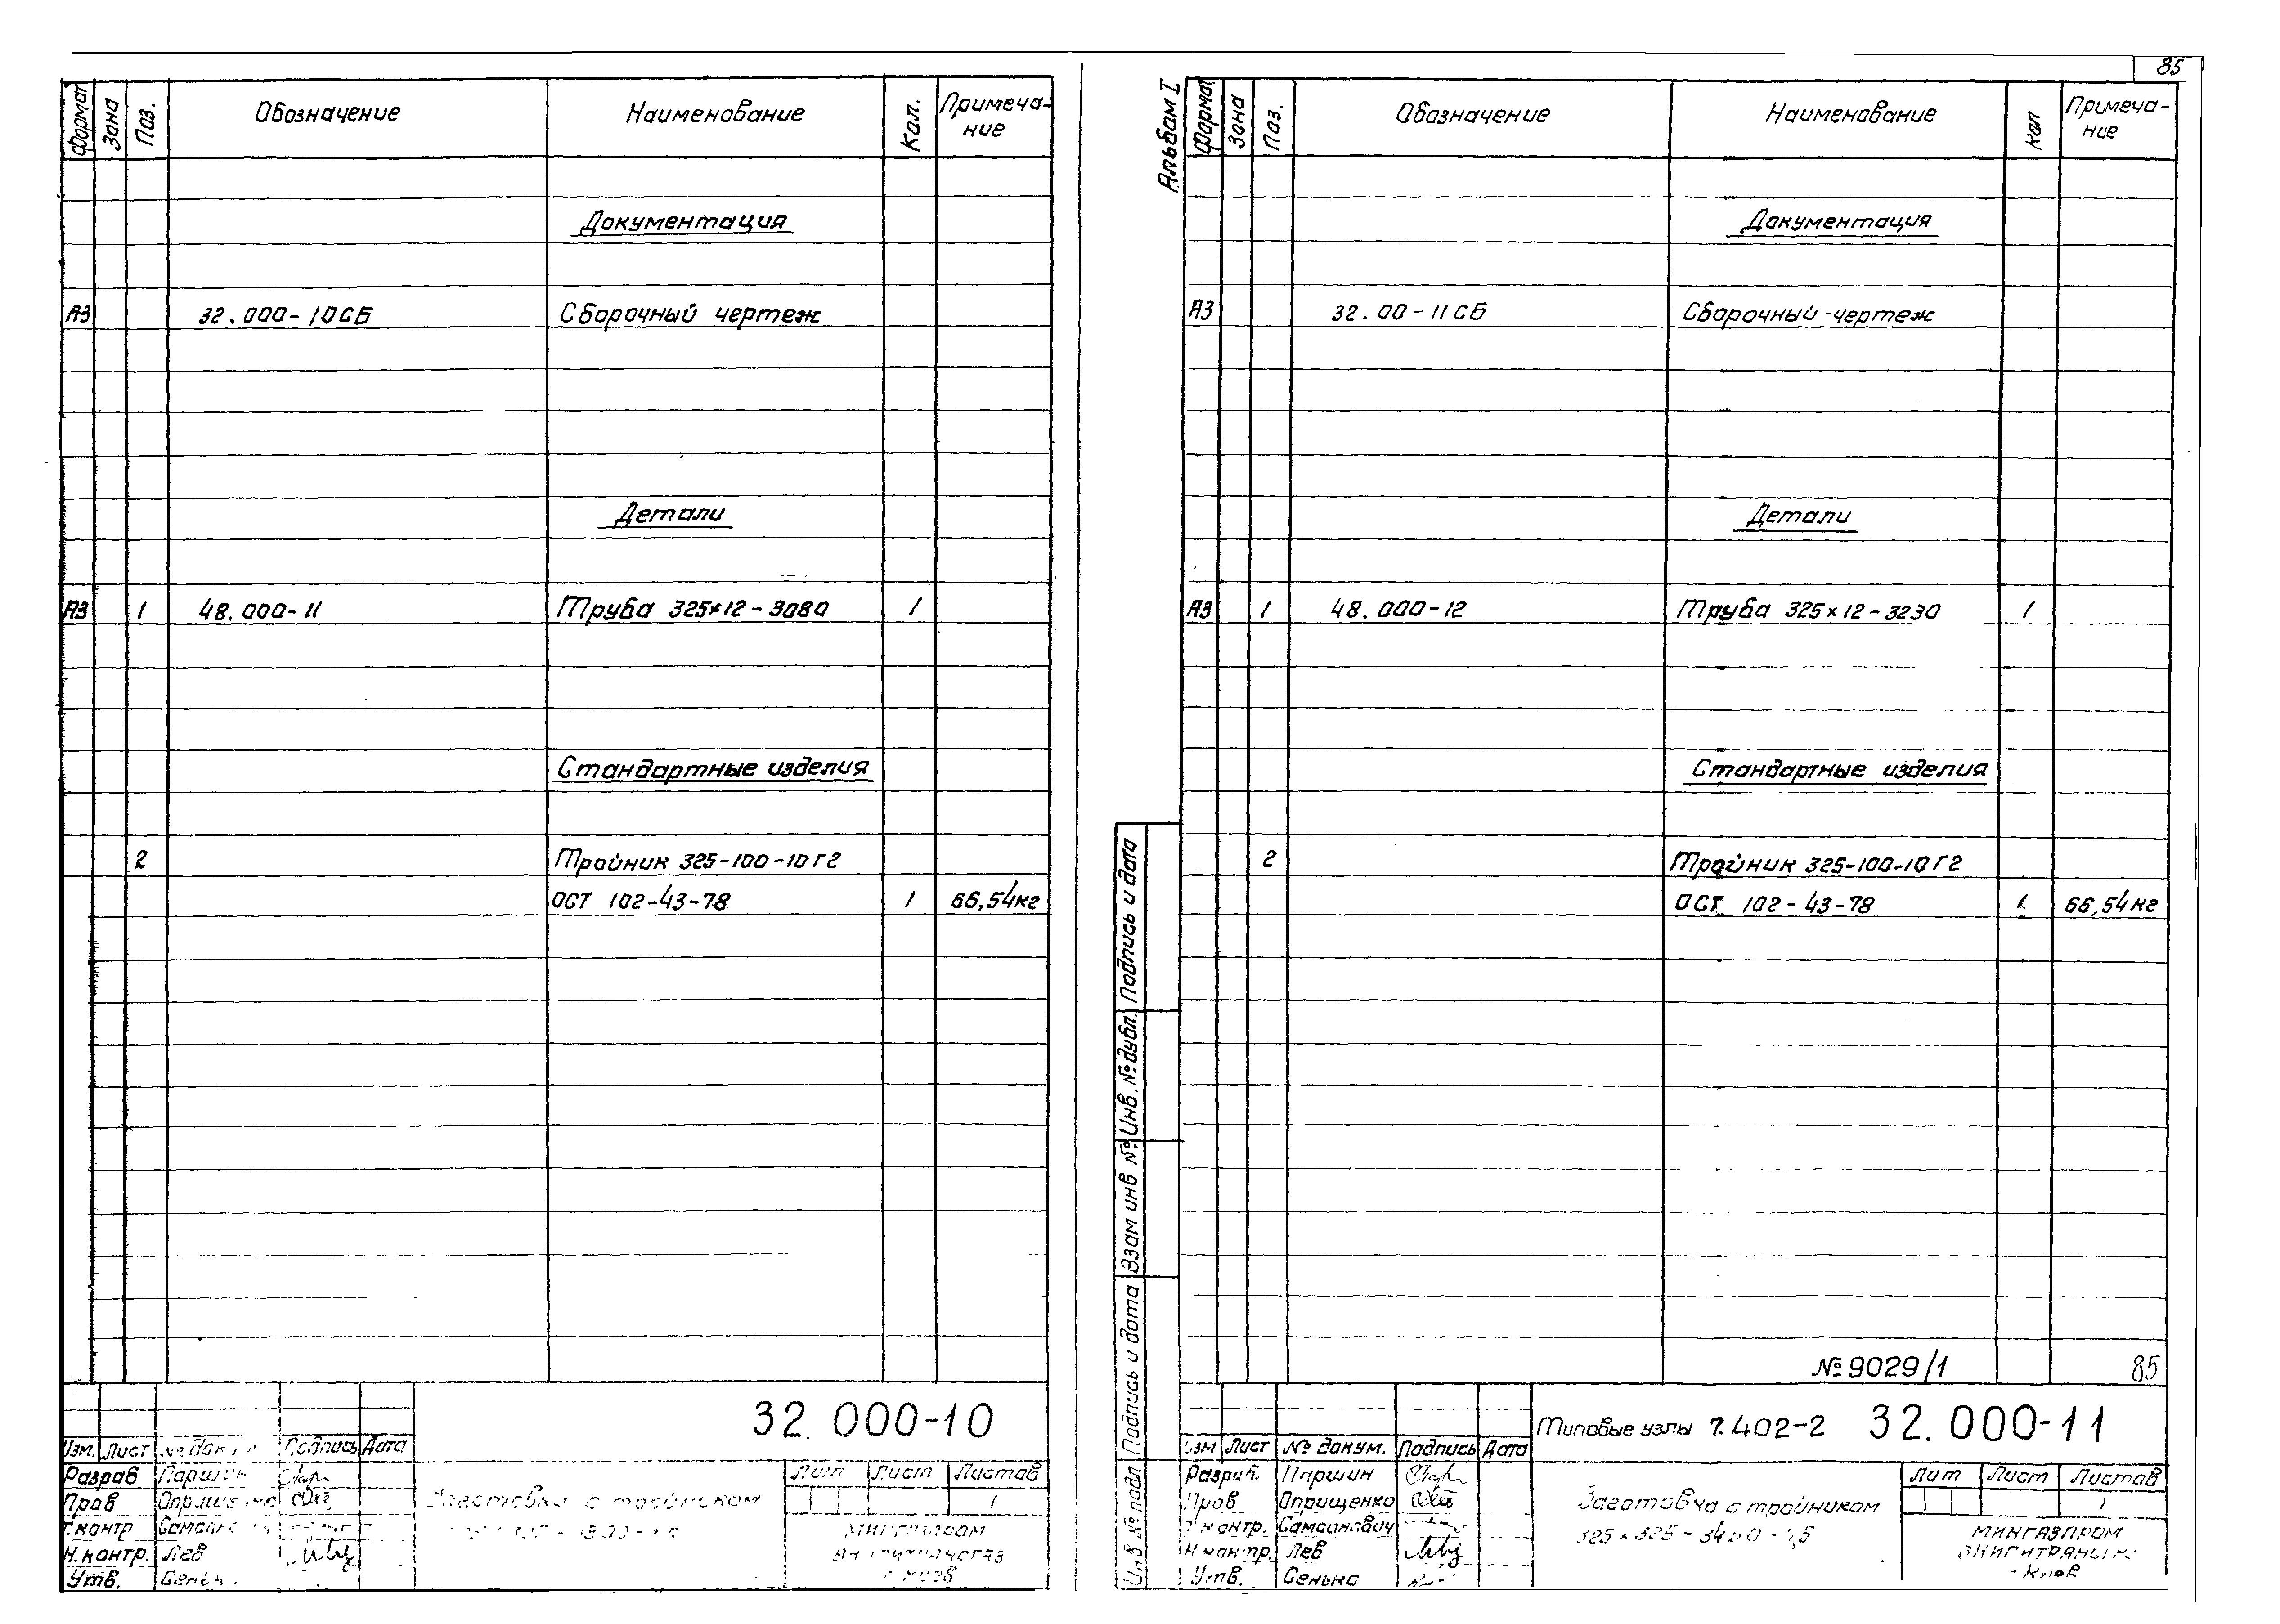 Формат Зона Поз. Обозначение Наименование Кол. Примеча-
ние
Документация
А3 32.000-10СБ Сборочный чертеж
Детали
А3 1 48.000-11 Труба 325×12-3080 1
Стандартные изделия
2 Тройник 325-100-10Г2
ОСТ 102-43-78 1 66,54кг
32.000-10
Изм. Лист № док Подпись Дата
Разраб Паршин
Пров Оприщенко
Т.контр
Н.контр. Лев
Утв.
Заготовка с тройником
Лит Лист Листов
1
МИНГАЗПРОМ
85
Альбом I
Формат Зона Поз. Обозначение Наименование Кол Примеча-
ние
Документация
А3 32.00-11СБ Сборочный чертеж
Детали
А3 1 48.000-12 Труба 325×12-3230 1
Стандартные изделия
2 Тройник 325-100-10Г2
ОСТ 102-43-78 1 66,54кг
Инв № подл Подпись и дата Взам инв № Инв. № дубл. Подпись и дата
№9029/1 85
Типовые узлы 7.402-2 32.000-11
Изм Лист № докум. Подпись Дата
Разраб. Паршин
Пров Оприщенко
Т контр. Самсонович
Н контр. Лев
Утв. Сенько
Заготовка с тройником
Лит Лист Листов
1
МИНГАЗПРОМ